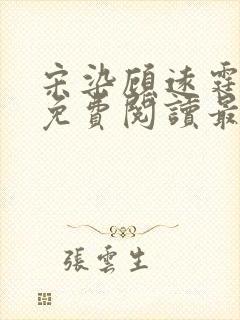 宋染顧遠霆
免費閱讀最
張雲生